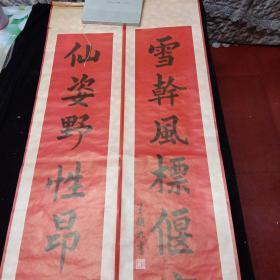 雪幹風標偃
仙姿野性昂